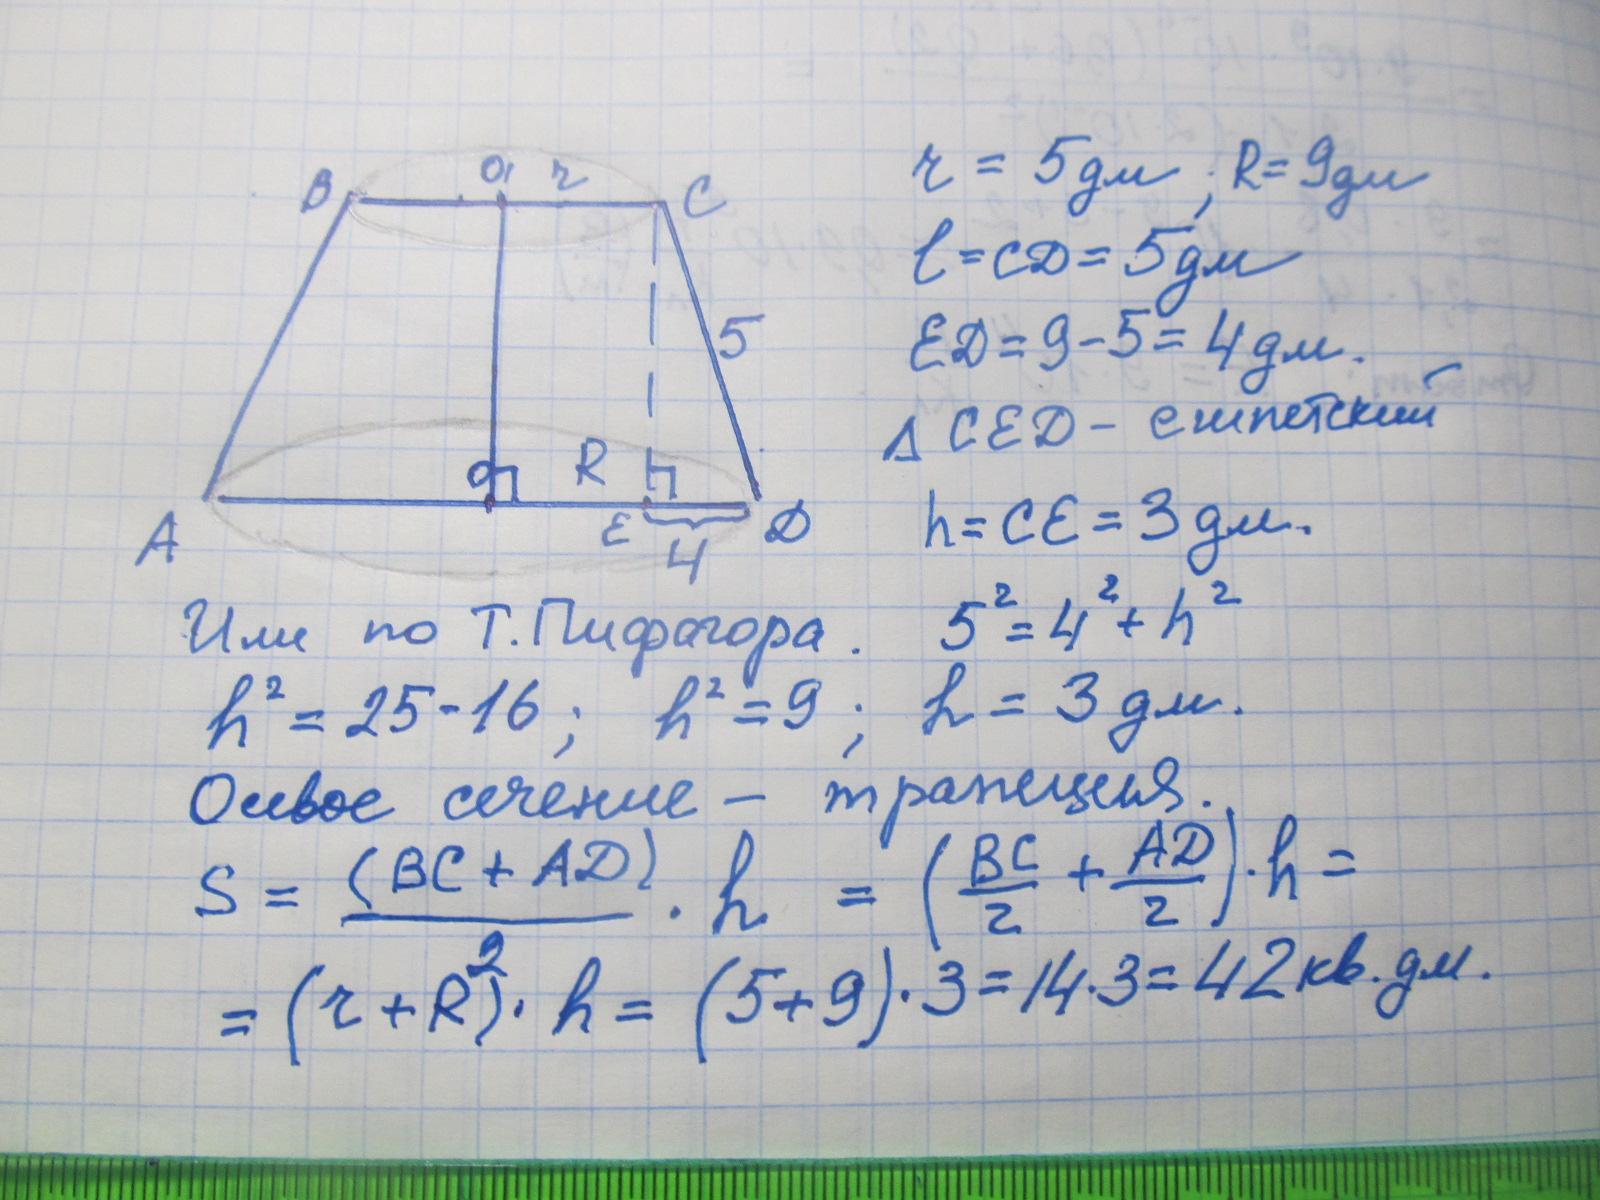 B O₁ r C
r = 5дм ; R = 9дм
l = CD = 5дм
5
ED = 9 - 5 = 4дм.
Δ CED – египетский
O R
A E D
4
h = CE = 3дм.
Или по Т. Пифагора. 5² = 4² + h²
h² = 25 - 16 ; h² = 9 ; h = 3дм.
Осевое сечение – трапеция.
S = (BC + AD)/2 · h = (BC/2 + AD/2) · h =
= (r + R) · h = (5 + 9) · 3 = 14 · 3 = 42 кв. дм.